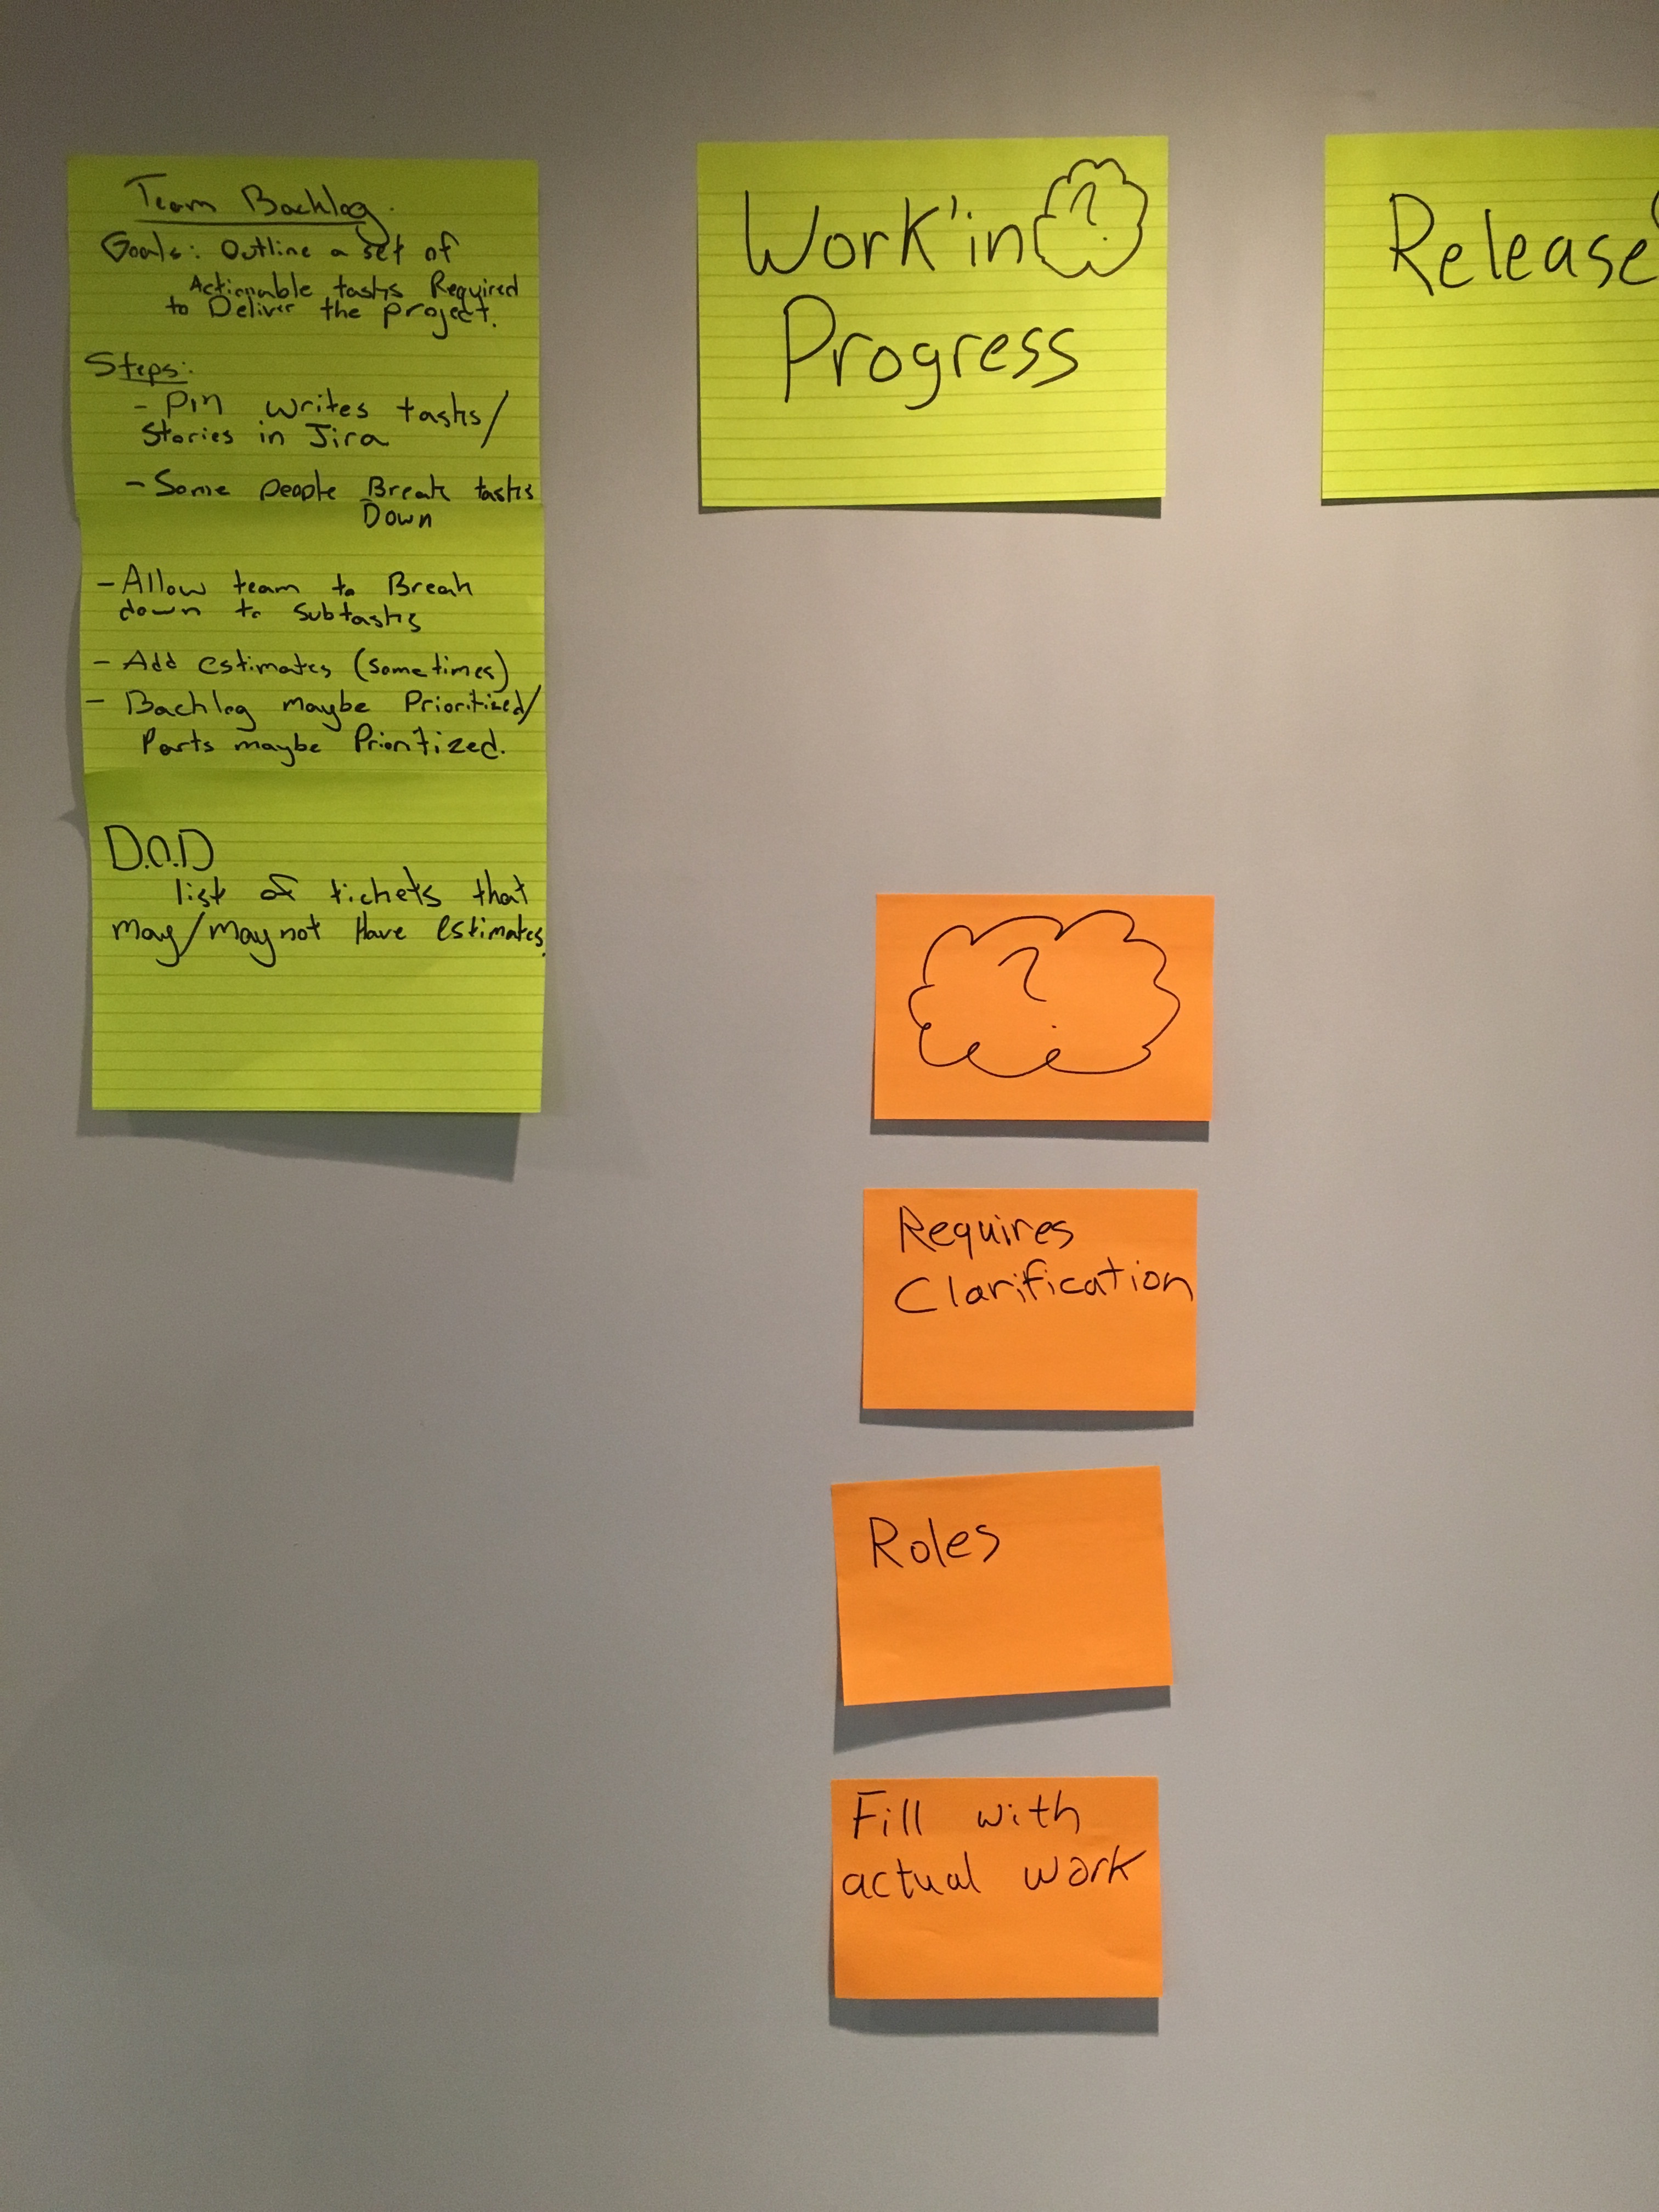 Team Backlog.
Goals: Outline a set of
Actionable tasks Required
to Deliver the project.
Steps:
- PM writes tasks/
Stories in Jira
- Some people Break tasks
Down
- Allow team to Break
down to Subtasks
- Add estimates (sometimes)
- Backlog maybe Prioritized/
Parts maybe Prioritized.
D.O.D
list of tickets that
may/may not Have estimates.
Work'in ?
Progress
Release
?
Requires
Clarification
Roles
Fill with
actual work